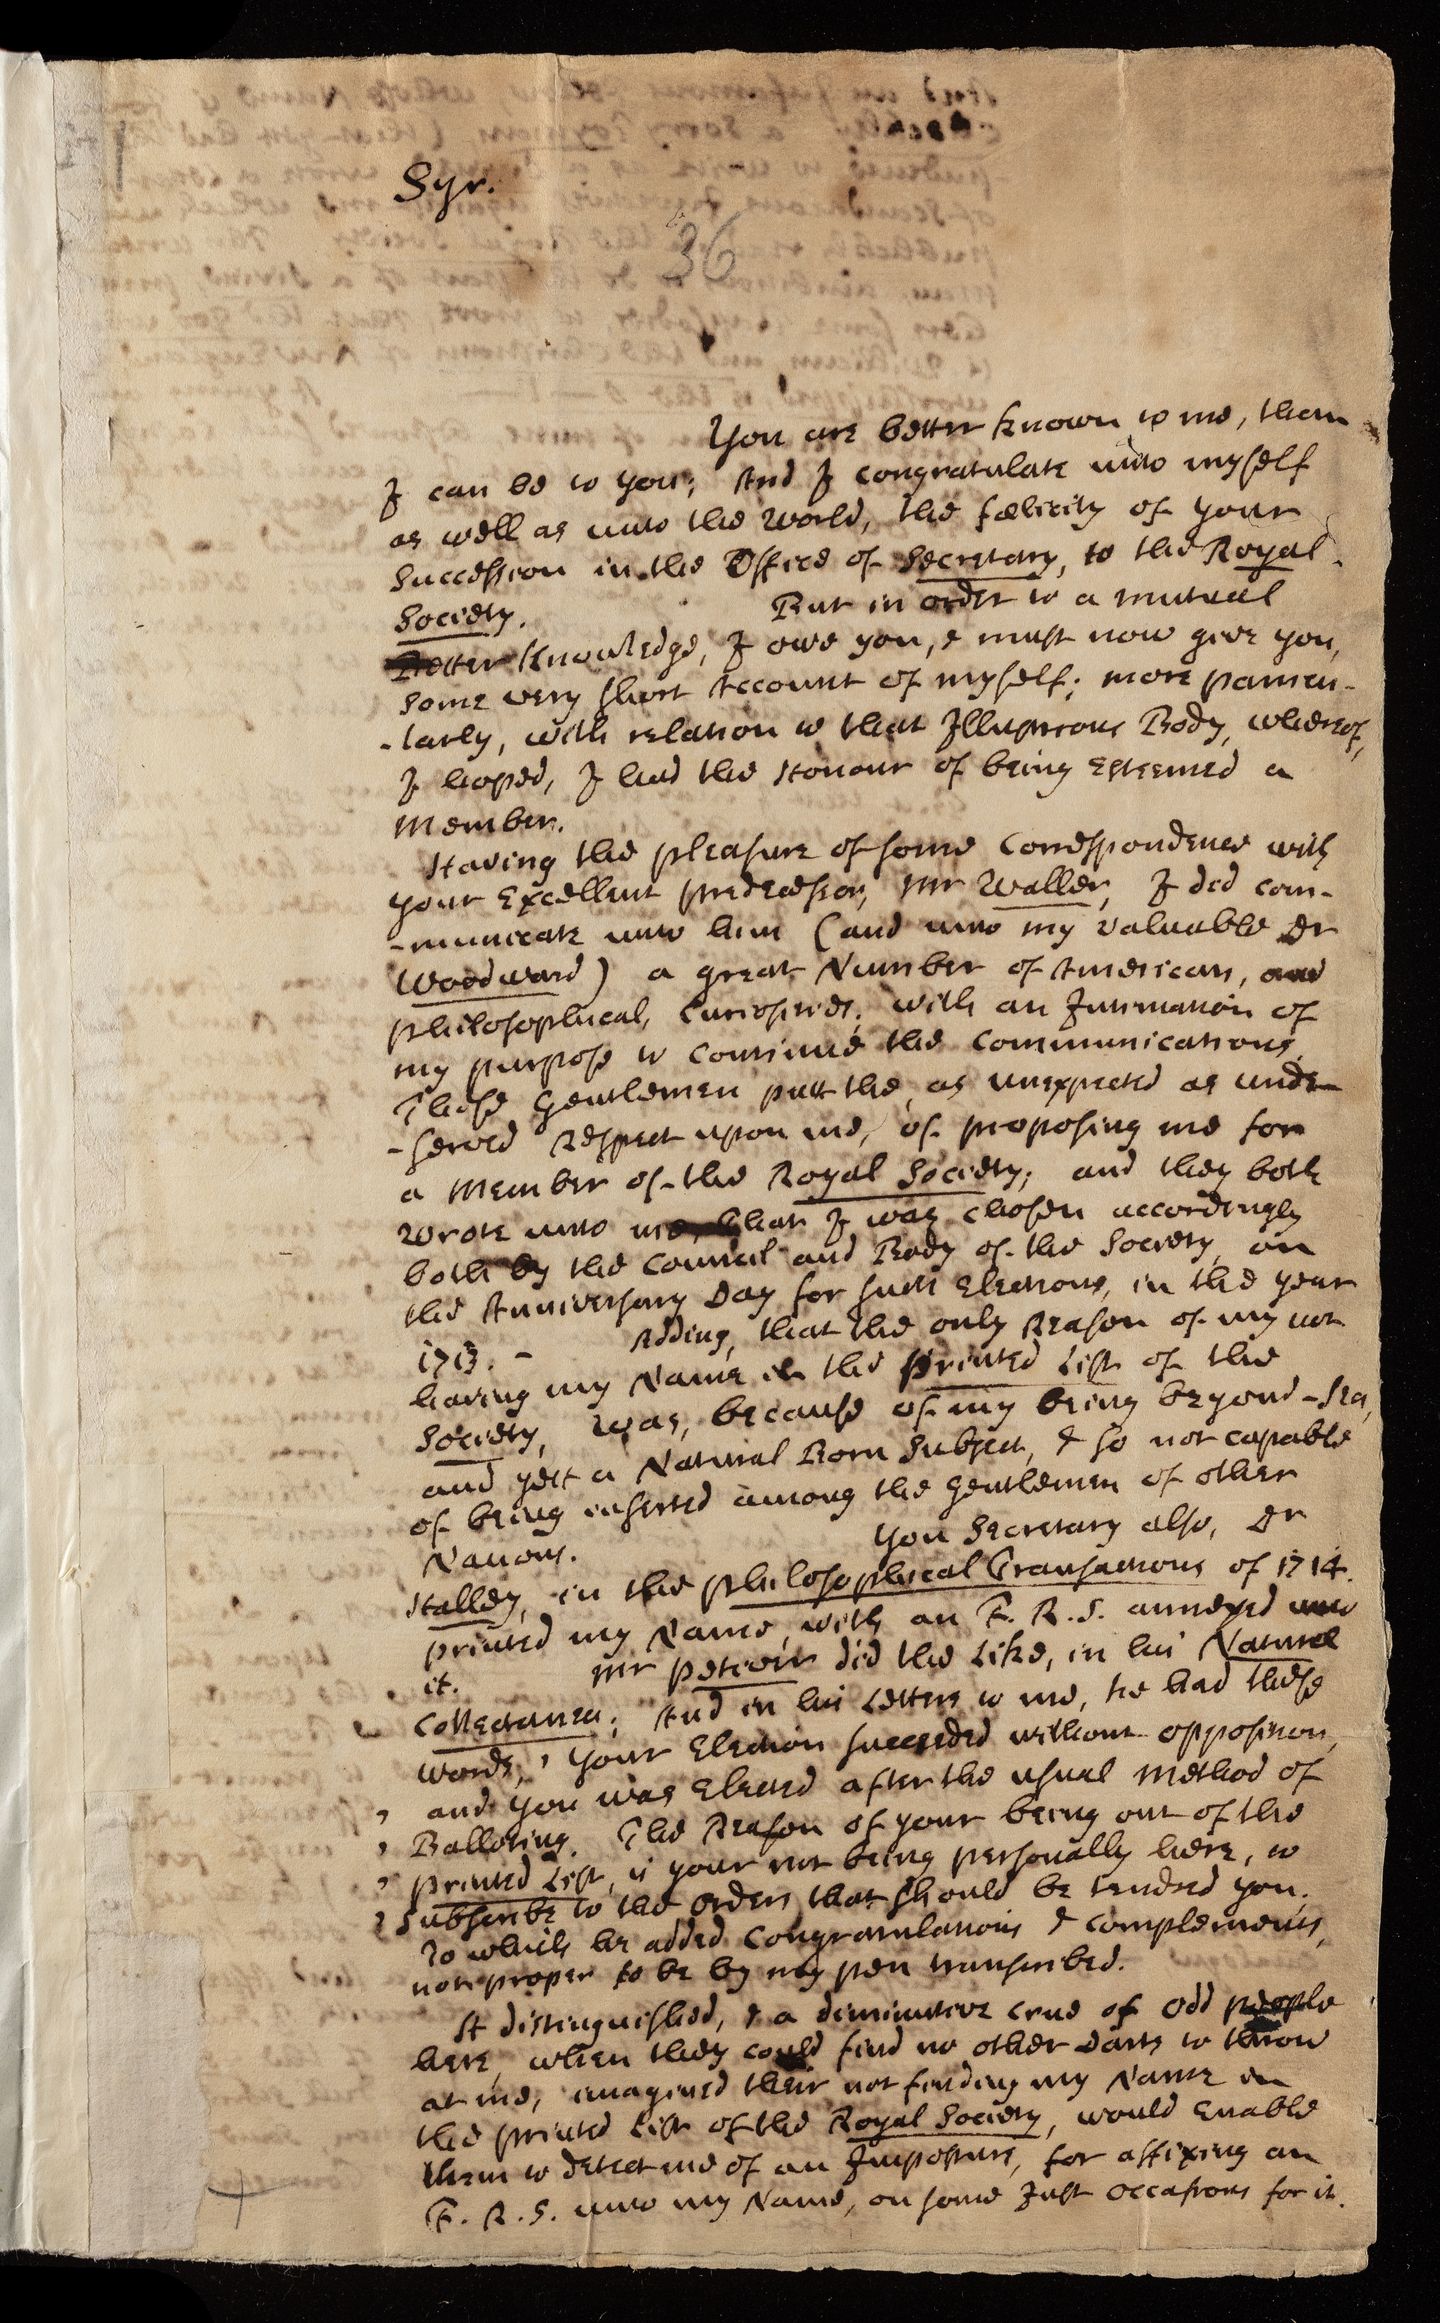 Syr.
36
You are better known to me, than
I can be to you; And I congratulate unto myself
as well as unto the World, the fælicity of your
Succession in the Office of Secretary, to the Royal
Society. But in order to a mutual
Better Knowledge, I owe you, & must now give you,
some very short Account of myself; more particu-
-larly, with relation to that Illustrious Body, whereof,
I hoped, I had the Honour of being esteemed a
Member.
Having the pleasure of some Correspondence with
your Excellent predecessor, Mr Waller, I did com-
-municate unto him (and unto my valuable Dr
Woodward) a great Number of American, and
philosophical, Curiosities; with an Intimation of
my purpose to continue the Communications.
These Gentlemen putt the, as unexpected as unde-
-served Respect upon me, of proposing me for
a Member of the Royal Society; and they both
wrote unto me, that I was chosen accordingly
both by the Council and Body of the Society, on
the Anniversary Day for such Elections, in the year
1713. - Adding, that the only Reason of my not
having my Name in the printed List of the
Society, was, because of my being beyond-Sea,
and yett a Natural Born Subject, & so not capable
of being inserted among the Gentlemen of other
Nations. You Secretary also, Dr
Halley, in the philosophical Transactions of 1714.
printed my Name, with an F. R. S. annexed unto
it. Mr Petiver did the Like, in his Natural
Collectanea; And in his Letters to me, he had these
words, ' Your Election succeeded without opposition,
' and you was Elected after the usual Method of
' Balloting. The Reason of your being out of the
' printed List, is your not being personally here, to
' Subscribe to the Orders that should be tendred you.
To which he added Congratulations & complements,
not proper to be by my pen transcribed.
A distinguished, & a diminutive crue of odd people
here, when they could find no other Darts to throw
at me, imagined their not finding my Name in
the printed List of the Royal Society, would enable
them to detect me of an Imposture, for affixing an
F. R. S. unto my Name, on some Just occasions for it.